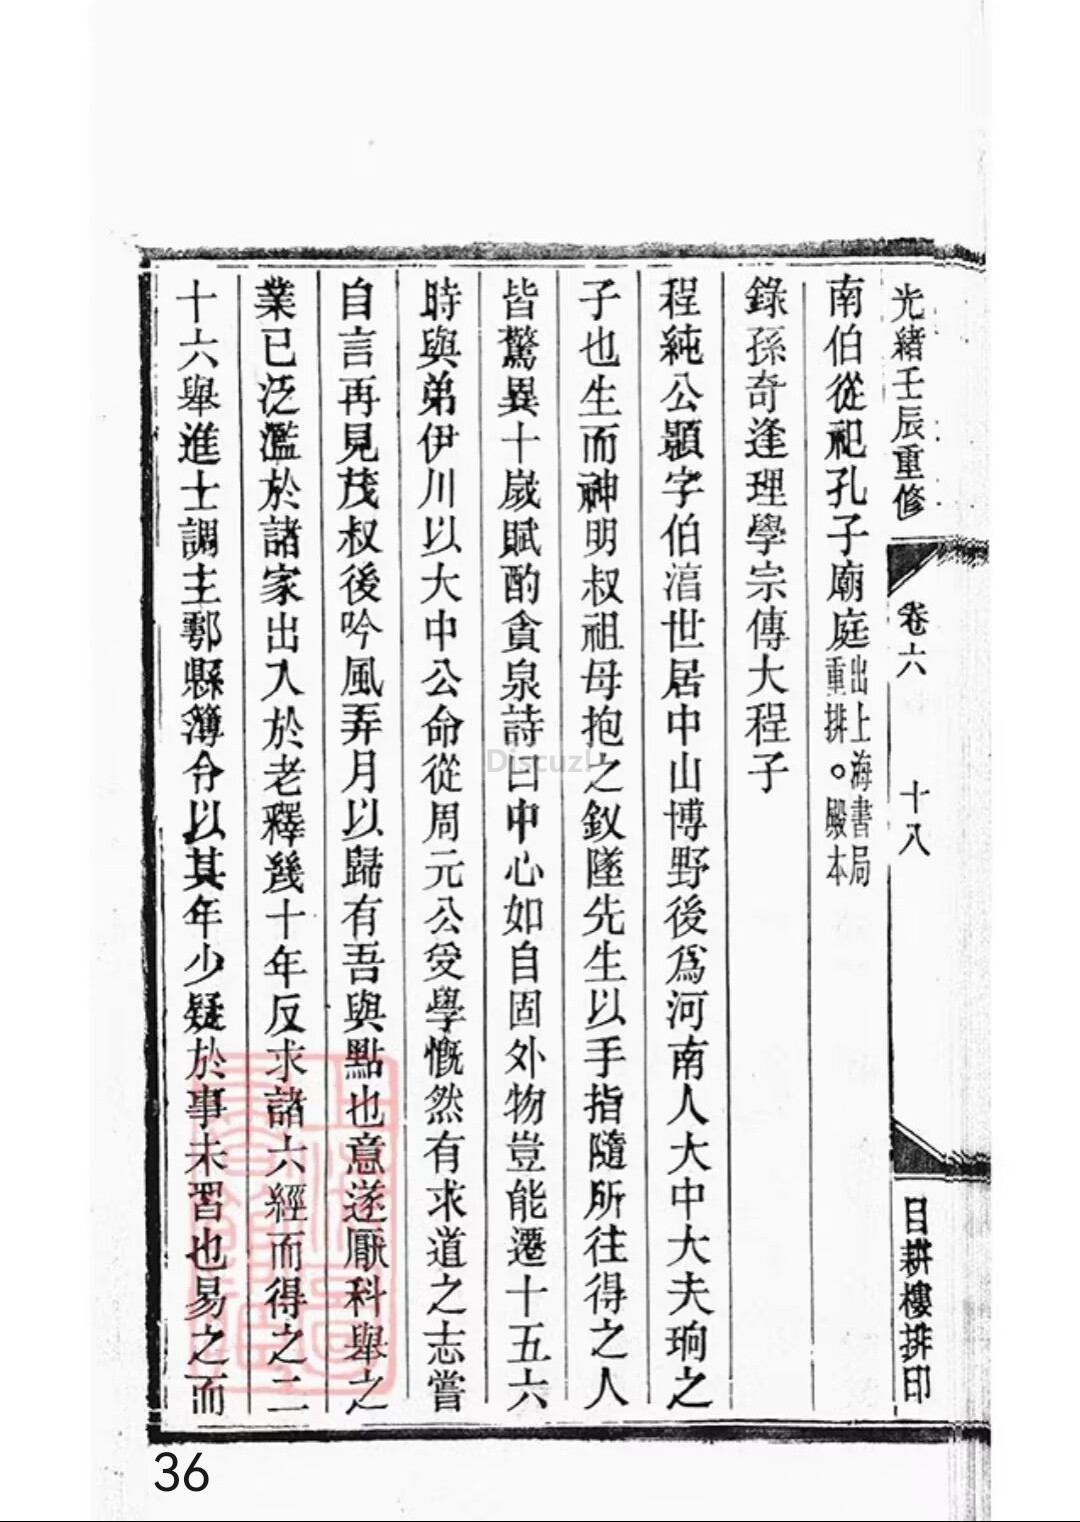 光緒壬辰重修
卷六
十八
目耕樓排印
南伯從祀孔子廟庭出上海書局
重排。殿本
錄孫奇逢理學宗傳大程子
程純公顥字伯湻世居中山博野後爲河南人大中大夫珦之
子也生而神明叔祖母抱之釵墜先生以手指隨所往得之人
皆驚異十嵗賦酌貪泉詩曰中心如自固外物豈能遷十五六
時與弟伊川以大中公命從周元公受學慨然有求道之志嘗
自言再見茂叔後吟風弄月以歸有吾與點也意遂厭科舉之
業已泛濫於諸家出入於老釋幾十年反求諸六經而得之二
十六舉進士調主鄠縣簿令以其年少疑於事未習也易之而
Discuz!
36